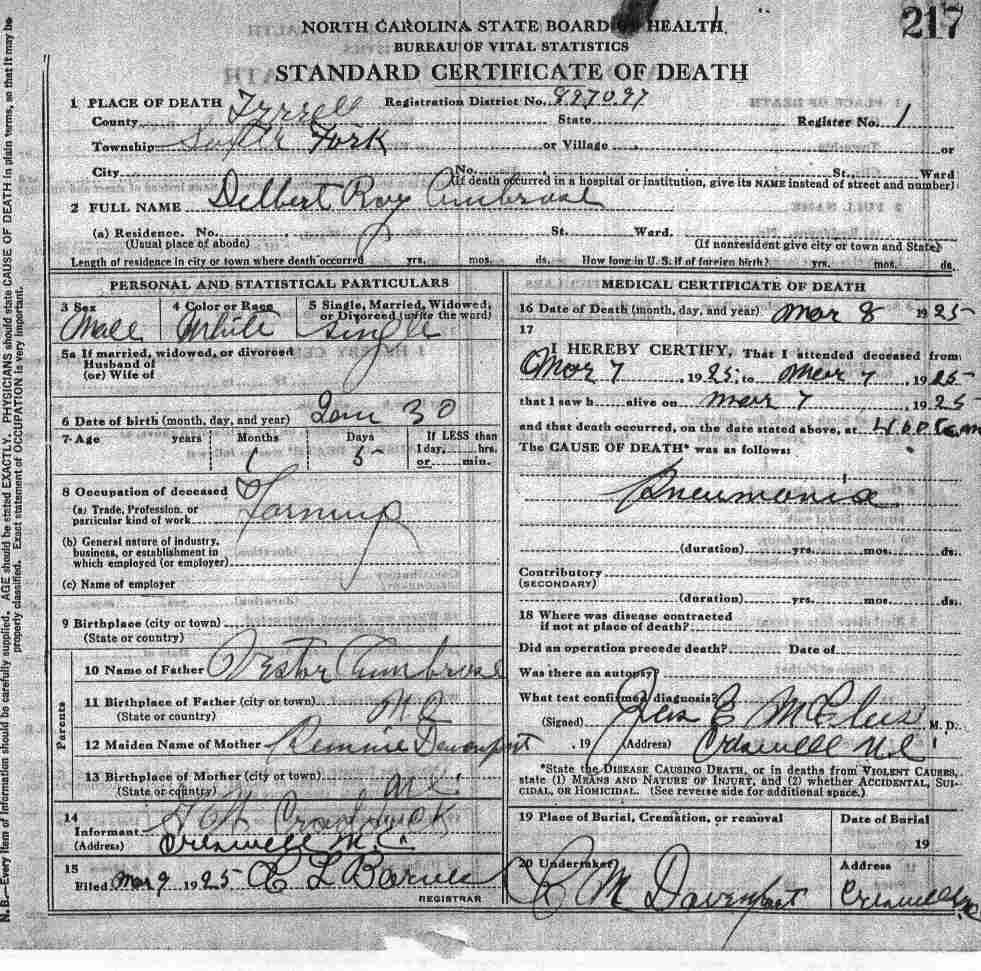 217
NORTH CAROLINA STATE BOARD OF HEALTH
BUREAU OF VITAL STATISTICS
STANDARD CERTIFICATE OF DEATH
1 PLACE OF DEATH Registration District No. 897097
County Tyrrell State Register No. 1
Township South Fork or Village or
City No. St., Ward
(If death occurred in a hospital or institution, give its NAME instead of street and number)
2 FULL NAME Delbert Roy Ambrose
(a) Residence. No. St. Ward.
(Usual place of abode) (If nonresident give city or town and State)
Length of residence in city or town where death occurred yrs. mos. ds. How long in U.S. if of foreign birth? yrs. mos. ds.
PERSONAL AND STATISTICAL PARTICULARS
3 Sex 4 Color or Race 5 Single, Married, Widowed, or Divorced (write the word)
Male White Single
5a If married, widowed, or divorced
Husband of
(or) Wife of
6 Date of birth (month, day, and year) Jan 30
7 Age years Months Days If LESS than
1 day, hrs.
1 5 or min.
8 Occupation of deceased
(a) Trade, Profession, or
particular kind of work Farming
(b) General nature of industry,
business, or establishment in
which employed (or employer)
(c) Name of employer
9 Birthplace (city or town)
(State or country)
Parents
10 Name of Father Vestor Ambrose
11 Birthplace of Father (city or town)
(State or country) N.C
12 Maiden Name of Mother Davenport
13 Birthplace of Mother (city or town)
(State or country) N.C.
14
Informant
(Address) Creswell N.C
15
Filed Mar 9 1925 L L Barnes
REGISTRAR
MEDICAL CERTIFICATE OF DEATH
16 Date of Death (month, day, and year) Mar 8 1925
17
I HEREBY CERTIFY, That I attended deceased from
Mar 7, 1925, to Mar 7, 1925
that I saw h alive on Mar 7, 1925
and that death occurred, on the date stated above, at m
The CAUSE OF DEATH* was as follows:
Pneumonia
(duration) yrs. mos. ds.
Contributory
(SECONDARY)
(duration) yrs. mos. ds.
18 Where was disease contracted
if not at place of death?
Did an operation precede death? Date of
Was there an autopsy?
What test confirmed diagnosis?
(Signed) M. D.
, 19 (Address) Creswell N.C
*State the DISEASE CAUSING DEATH, or in deaths from VIOLENT CAUSES,
state (1) MEANS AND NATURE OF INJURY, and (2) whether ACCIDENTAL, SUI-
CIDAL, OR HOMICIDAL. (See reverse side for additional space.)
19 Place of Burial, Cremation, or removal Date of Burial
19
20 Undertaker Address
M Davenport Creswell N.C
N. B.—Every item of information should be carefully supplied. AGE should be stated EXACTLY. PHYSICIANS should state CAUSE OF DEATH in plain terms, so that it may be
properly classified. Exact statement of OCCUPATION is very important.